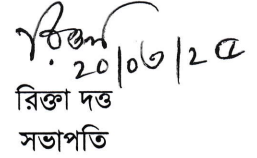 রিক্তা
20/06/25
রিক্তা দত্ত
সভাপতি